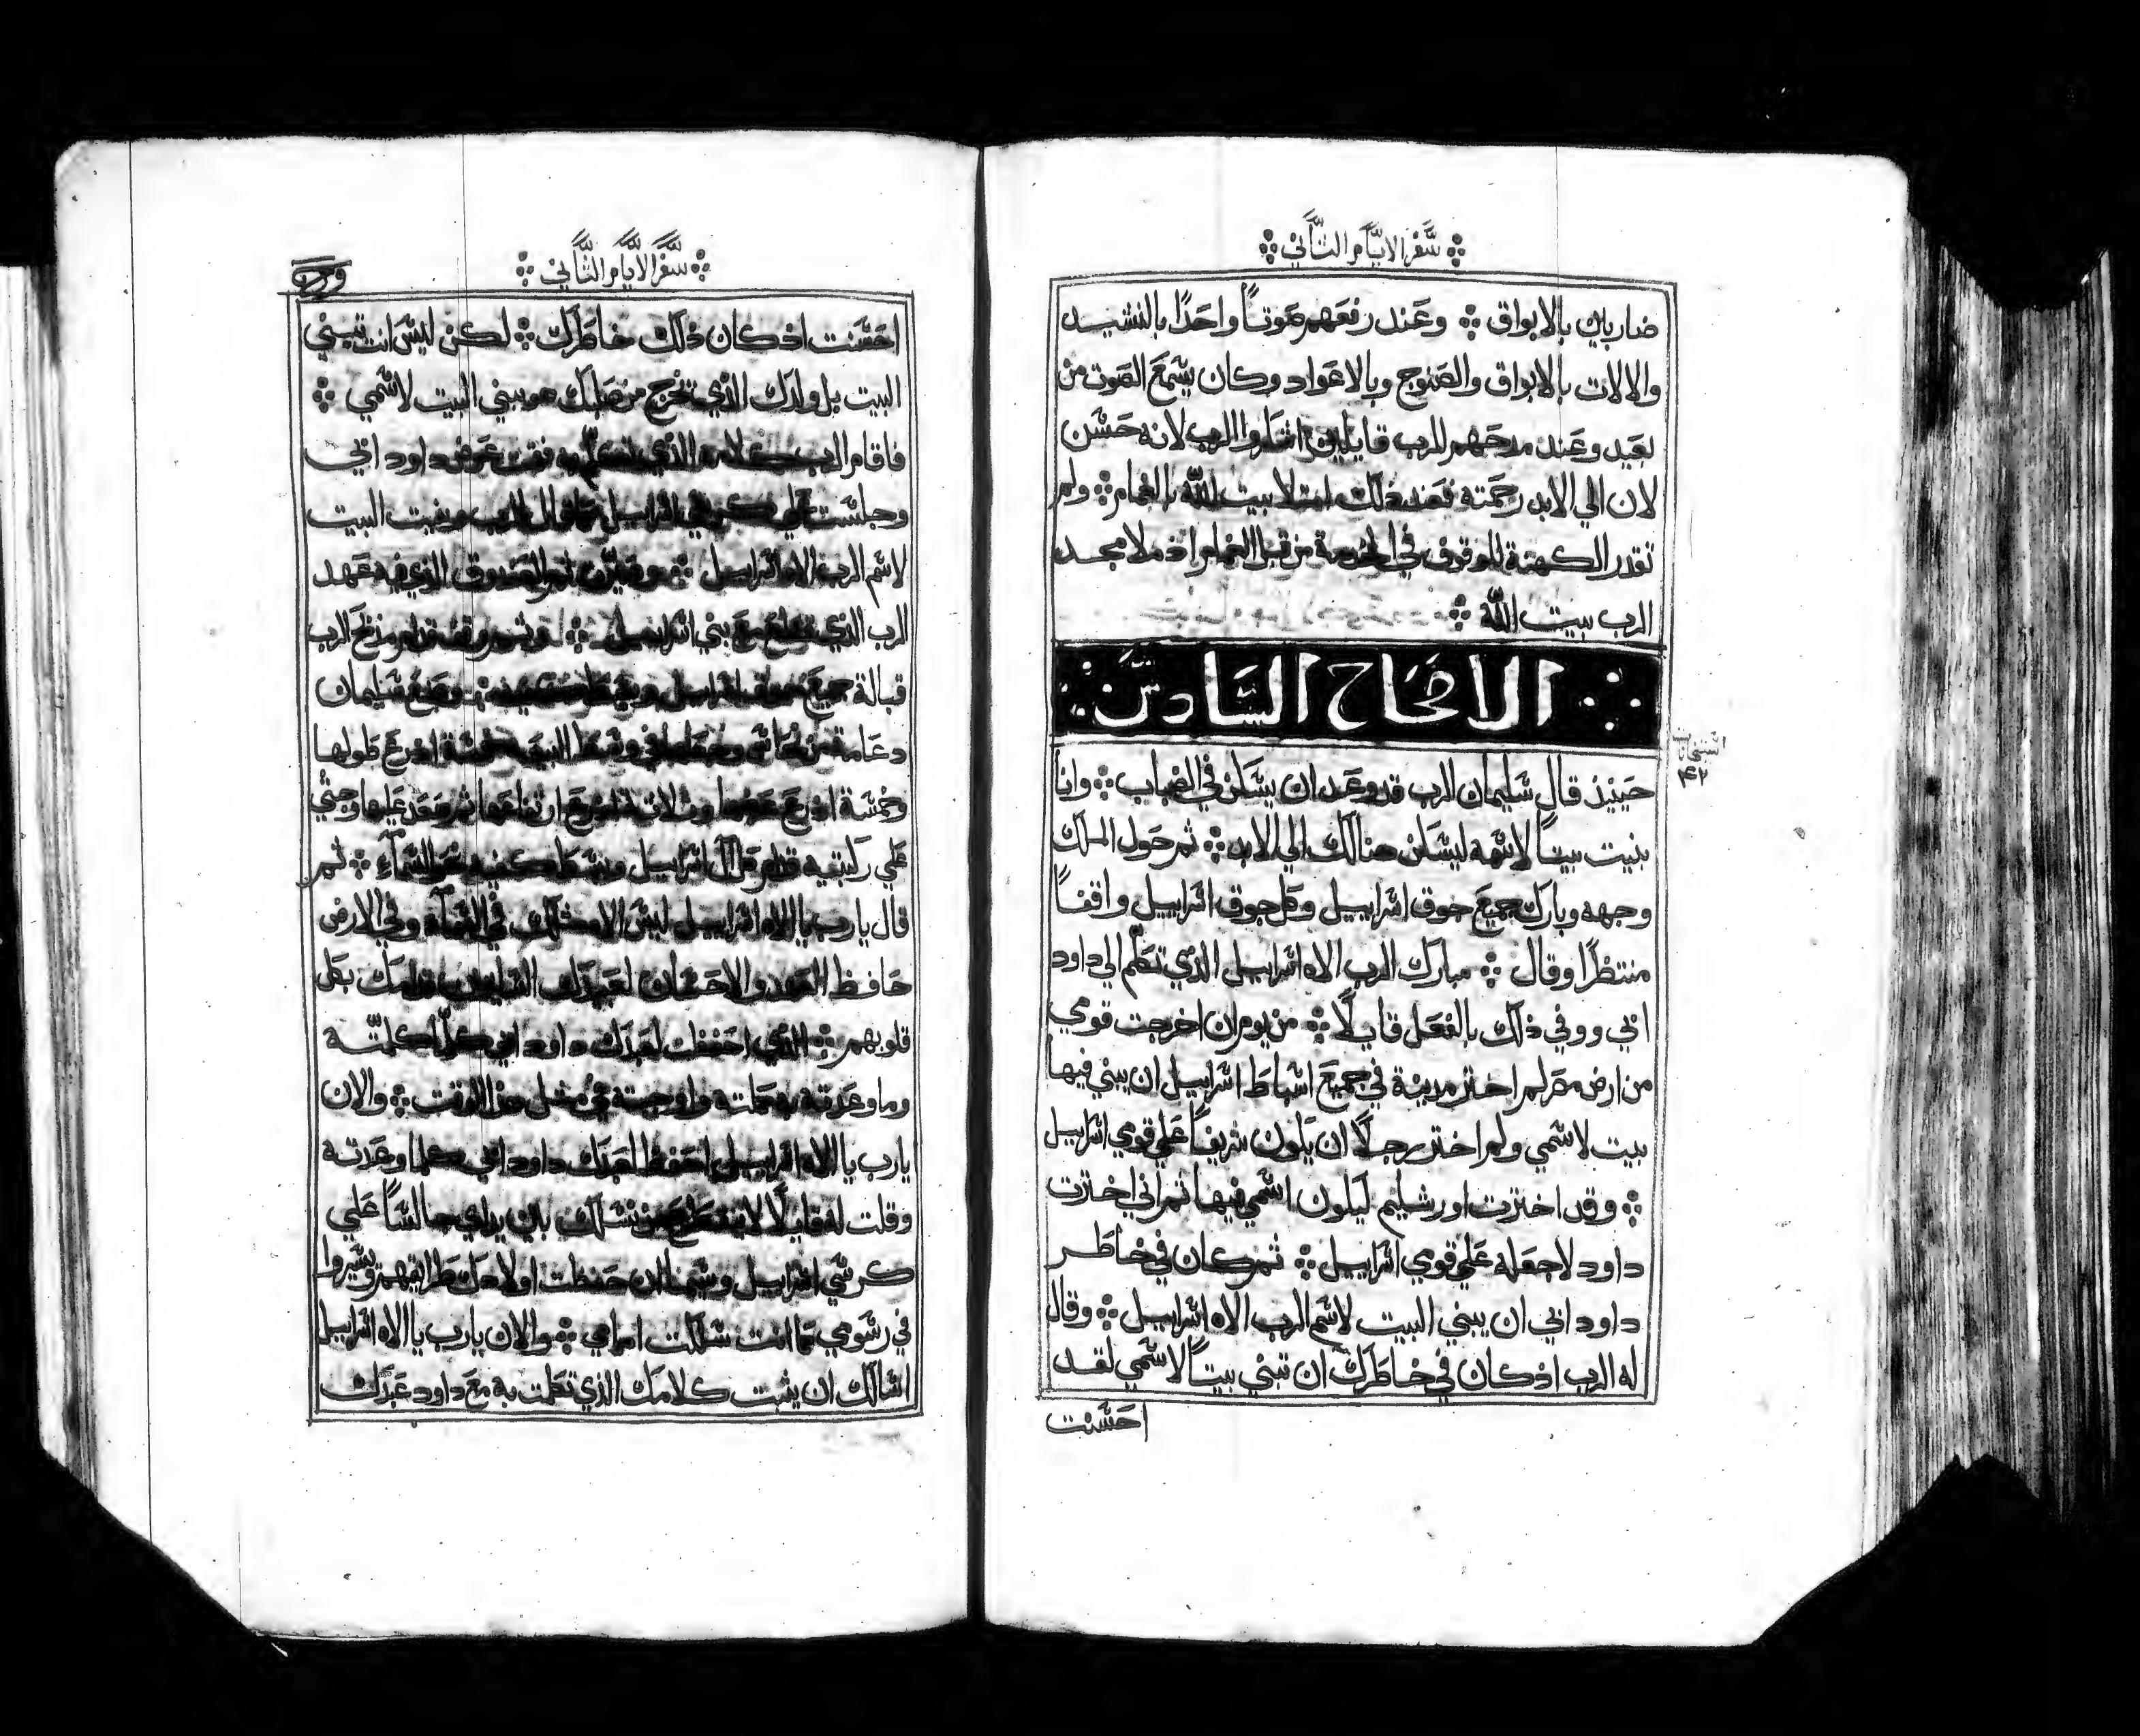 سفر الايام الثاني
ضاربين بالابواق ❖ وعند رفعهم صوتاً واحدًا بالنشيد
والالات بالابواق والصنوج وبالاعواد وكان يسمع الصوت من
بعيد وعند مدحهم للرب قايلين اشكروا الرب لانه حسن
لان الي الابد رحمته فعند ذلك امتلا بيت الله بالغمام ❖ ولم
تقدر الكهنة للوقوف في الخدمة من قبل الغمام اذ ملا مجد
الرب بيت الله ❖
الاصحاح السادس
حينيذ قال سليمان الرب قد وعد ان يسكن في الضباب ❖ وانا
بنيت بيتاً لاسمه ليسكن هنالك الي الابد ❖ ثم حول الملك
وجهه وبارك جميع جوق اسراييل وكل جوق اسراييل واقفاً
منتظرًا وقال ❖ مبارك الرب الاه اسراييل الذي تكلم الي داود
ابي ووفي ذلك بالفعل قايلًا ❖ من يوم ان اخرجت قومي
من ارض مصر لم اختر مدينة في جميع اسباط اسراييل ان يبني فيها
بيت لاسمي ولم اختر رجلًا ان يكون شريفاً علي قومي اسراييل
❖ وقد اخترت اورشليم ليكون اسمي فيها ثم اني اخترت
داود لاجعله علي قومي اسراييل ❖ ثم كان في خاطر
داود ابي ان يبني البيت لاسم الرب الاه اسراييل ❖ وقال
له الرب اذ كان في خاطرك ان تبني بيتاً لاسمي لقد
احسنت
سفر الايام الثاني
احسنت اذ كان ذلك خاطرك ❖ لكن ليس انت تبني
البيت بل ولدك الذي تخرج من صلبك هو يبني البيت لاسمي ❖
فاقام الرب كلامه الذي تكلم به فقمت عوض داود ابي
وجلست علي كرسي اسراييل كما قال الرب وبنيت البيت
لاسم الرب الاه اسراييل ❖ وصيرت ثم الصندوق الذي فيه عهد
الرب الذي مع بني اسراييل ❖ وثم وقف قدام مذبح الرب
قبالة جميع جوق اسراييل وبسط يديه ❖ وصنع سليمان
دعامة من نحاس وجعلها في وسط البيت خمسة اذرع طولها
وخمسة اذرع عرضها وثلاثة اذرع ارتفاعها ثم صعد عليها وجثي
علي ركبتيه قدام كل اسراييل وبسط كفيه نحو السماء ❖ ثم
قال يا رب يا الاه اسراييل ليس الاه مثلك في السماء وفي الارض
حافظ العهد والاحسان لعبيدك السايرين قدامك بكل
قلوبهم ❖ الذي احفظت لعبدك داود ابي كلما كلمته
وما وعدته به كملته واوجبته في مثل هذا الوقت ❖ والان
يارب يا الاه اسراييل احفظ لعبدك داود ابي كلما وعدته
وقلت له قايلًا لا ينقطع من نسلك باين يداي جالساً علي
كرسي اسراييل وسيما ان حفظت اولادك طرايقهم وسيروا
في رسومي كما انت سلكت امامي ❖ والان يارب يا الاه اسراييل
اسالك ان يثبت كلامك الذي تكلمت به مع داود عبدك